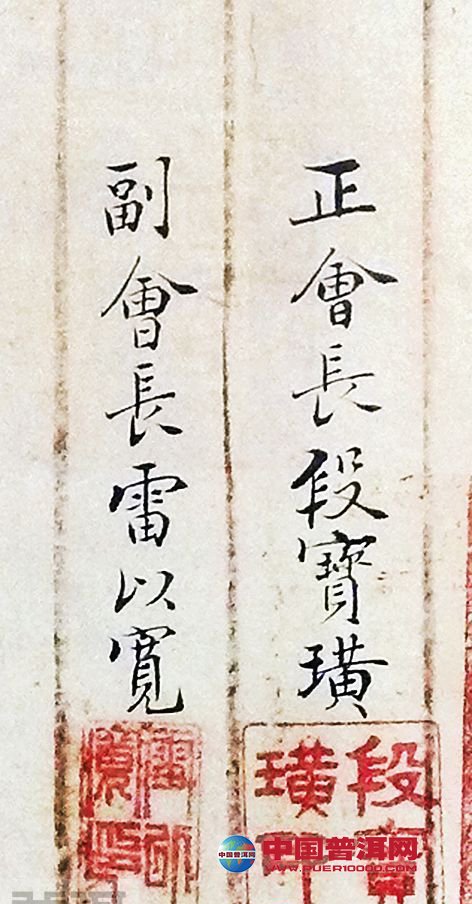 正會長段寶璜
副會長雷以寬
段寶璜
中国普洱网
中国普洱网
WWW.PUER10000.COM